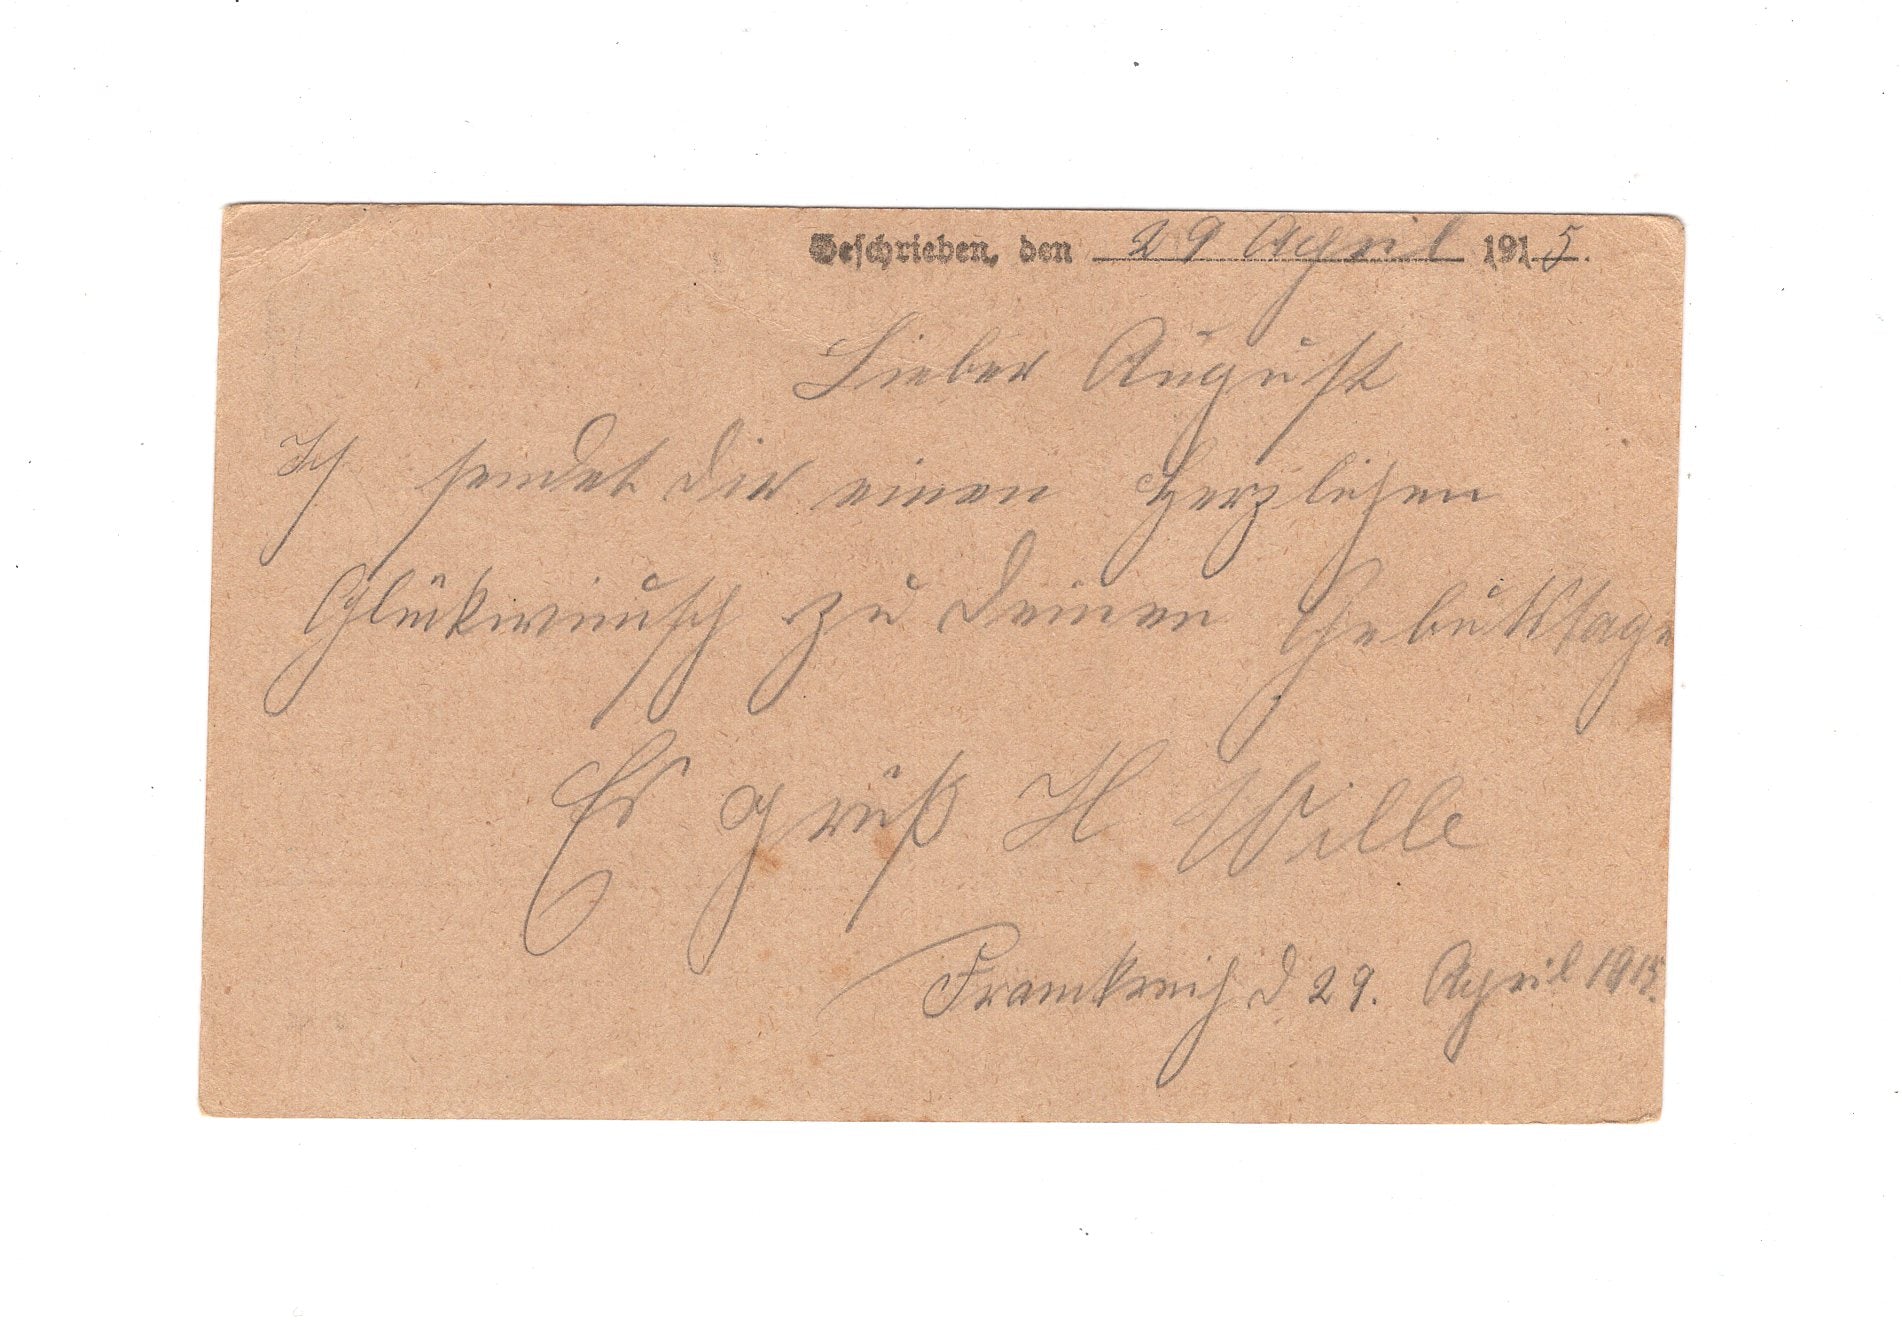 Geschrieben, den 29 April 1915.
Lieber August
Ich sendet dir einen herzlichen
Glückwunsch zu deinen Gebutstage
Es grüß H Wille
Frankreich d 29. April 1915.